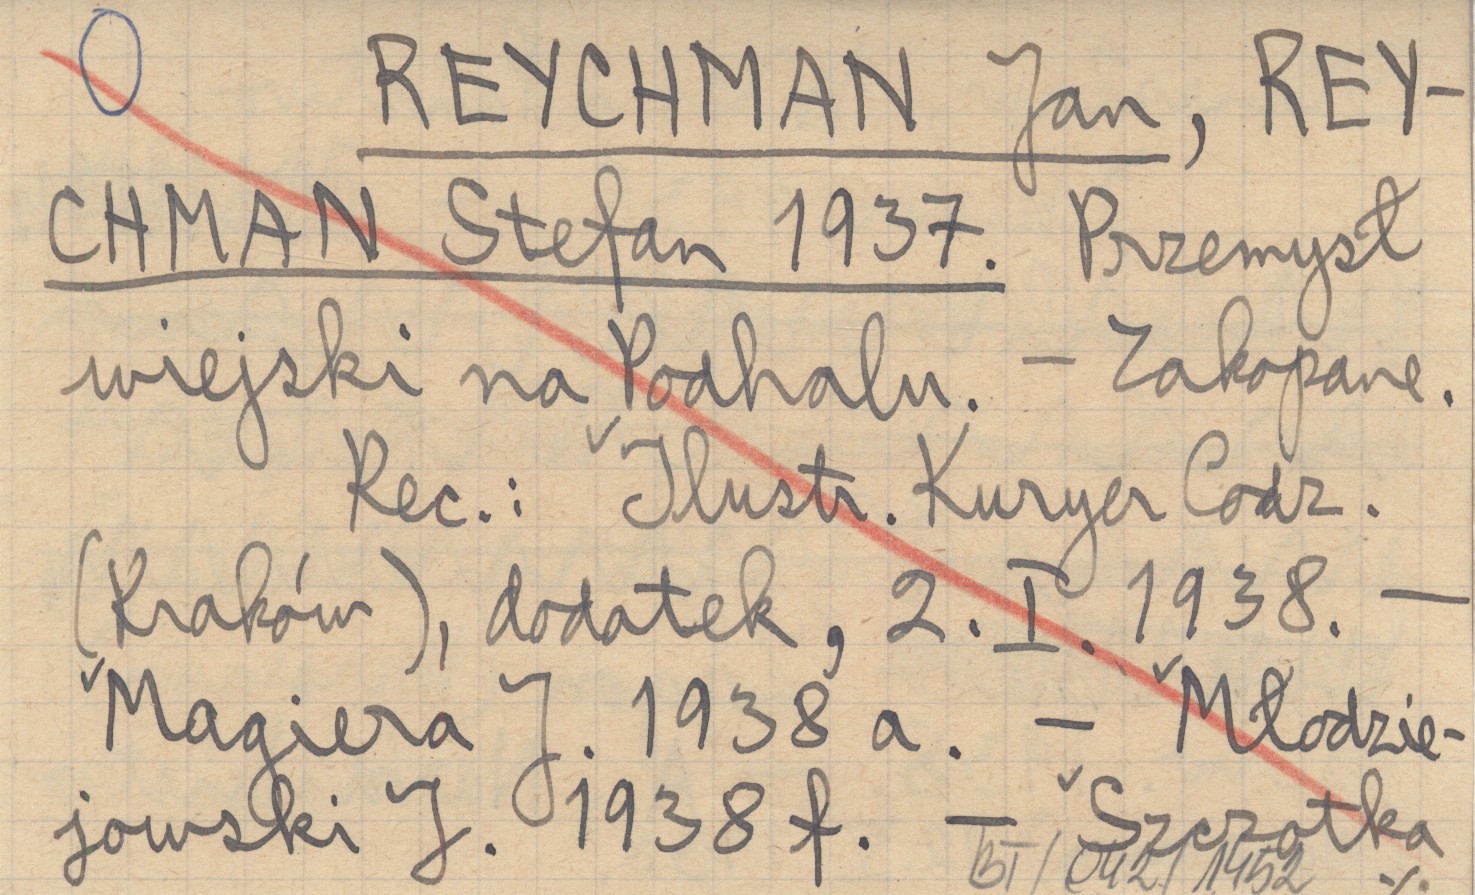 REYCHMAN Jan, REY-
CHMAN Stefan 1937. Przemysł
wiejski na Podhalu. – Zakopane.
Rec.: Ilustr. Kuryer Codz.
(Kraków), dodatek, 2. I. 1938. —
Magiera J. 1938 a. – Młodzie-
jowski J. 1938 f. — Szczotka
BT/042/1452 ./.